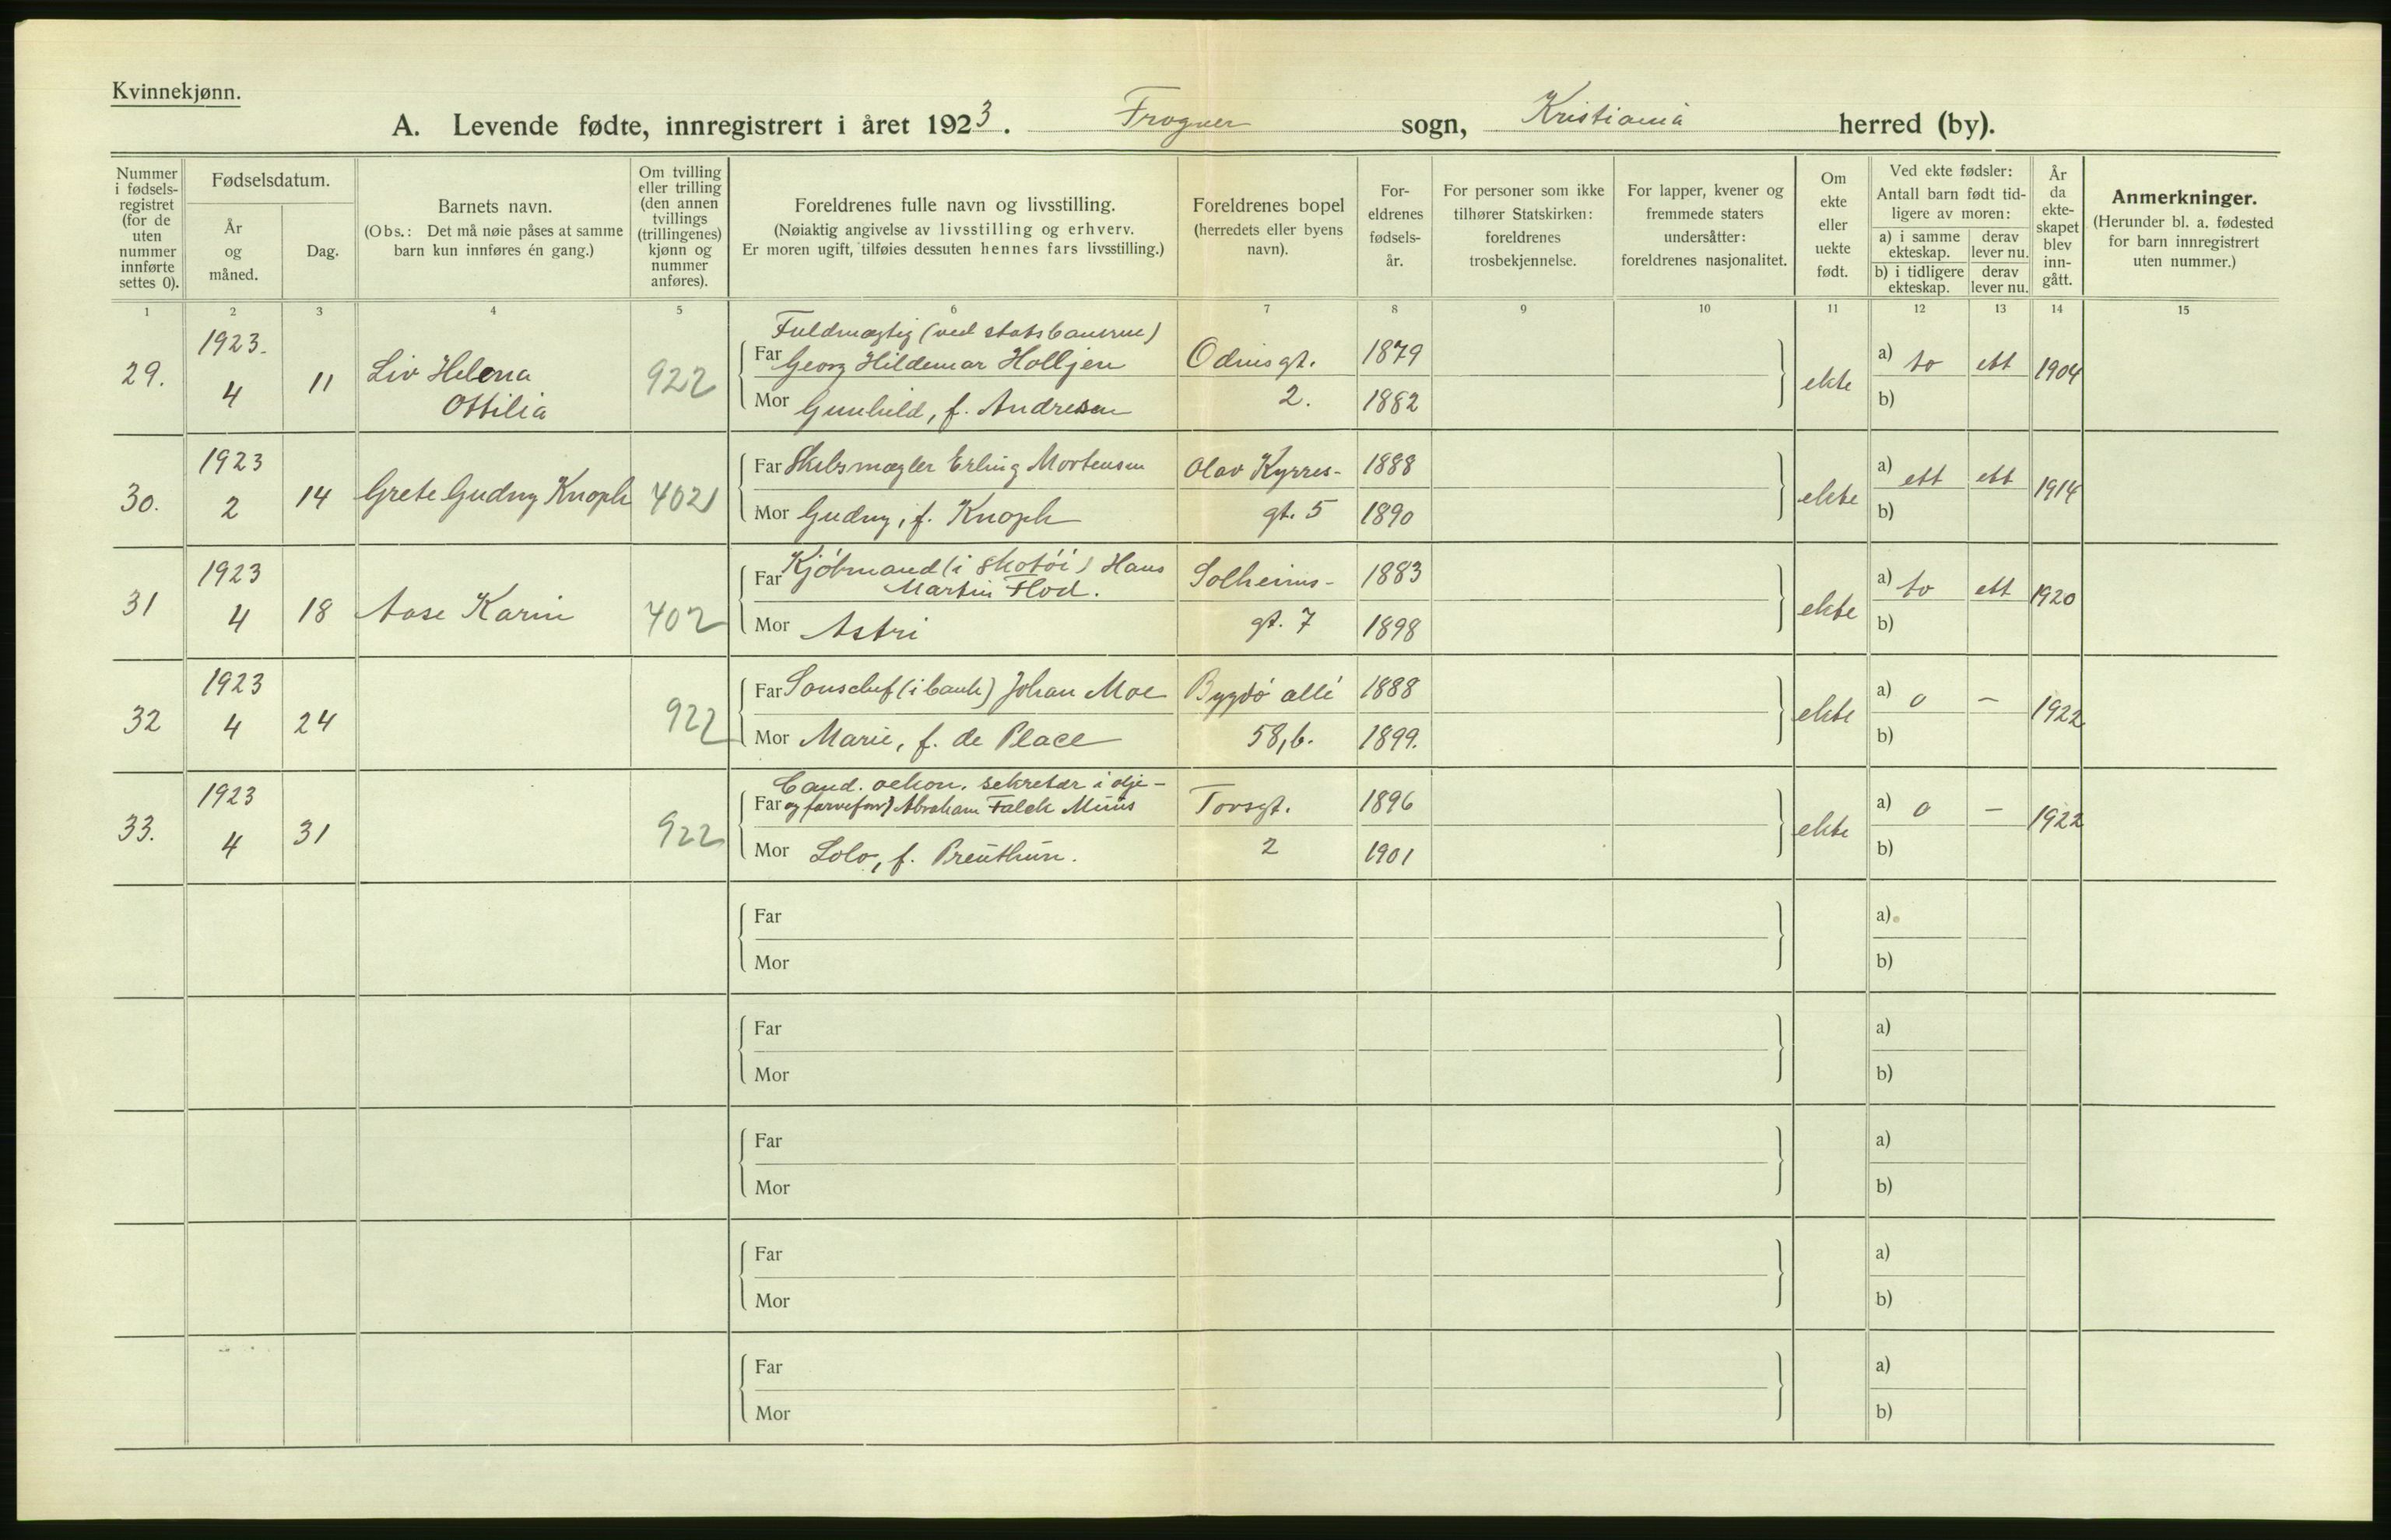 Kvinnekjønn.
A. Levende fødte, innregistrert i året 1923. Frogner sogn, Kristiania herred (by).
Nummer i fødsels-registret (for de uten nummer innførte settes 0).
Fødselsdatum.
År og måned.
Dag.
Barnets navn.
(Obs.: Det må nøie påses at samme barn kun innføres én gang.)
Om tvilling eller trilling (den annen tvillings (trillingenes) kjønn og nummer anføres).
Foreldrenes fulle navn og livsstilling.
(Nøiaktig angivelse av livsstilling og erhverv.
Er moren ugift, tilføies dessuten hennes fars livsstilling.)
Foreldrenes bopel (herredets eller byens navn).
For-eldrenes fødsels-år.
For personer som ikke tilhører Statskirken: foreldrenes trosbekjennelse.
For lapper, kvener og fremmede staters undersåtter: foreldrenes nasjonalitet.
Om ekte eller uekte født.
Ved ekte fødsler:
Antall barn født tid-ligere av moren:
a) i samme ekteskap.
derav lever nu.
b) i tidligere ekteskap.
derav lever nu.
År da ekte-skapet blev inn-gått.
Anmerkninger.
(Herunder bl. a. fødested for barn innregistrert uten nummer.)
1 2 3 4 5 6 7 8 9 10 11 12 13 14 15
29. 1923. 4 11 Liv Helena Ottilia 922
Fuldmægtig (ved statsbanerne)
Far Georg Hildemar Holljen Odinsgt. 1879
Mor Gunhild, f. Andresen 2. 1882
ekte a) to ett 1904
b)
30. 1923 2 14 Grete Gudny Knoph 402
Far Skibsmægler Erling Mortensen Olav Kyrres- 1888
Mor Gudny, f. Knoph gt. 5 1890
ekte a) ett ett 1914
b)
31 1923 4 18 Aase Karin 402
Kjøbmand (i skotøi) Hans
Far Martin Flod. Solheims- 1883
Mor Astri gt. 7 1898
ekte a) to ett 1920
b)
32 1923 4 24 922
Far (i bank) Johan Moe Bygdø allé 1888
Mor Marie, f. de Place 58, b. 1899.
ekte a) 0 – 1922
b)
33. 1923 4 31 922
Cand. oekon. sekretær i olje-
Far og farvefor) Abraham Falck Müüs Torsgt. 1896
Mor Lolo, f. Preuthun. 2 1901
ekte a) 0 – 1922
b)
Far a)
Mor b)
Far a)
Mor b)
Far a)
Mor b)
Far a)
Mor b)
Far a)
Mor b)